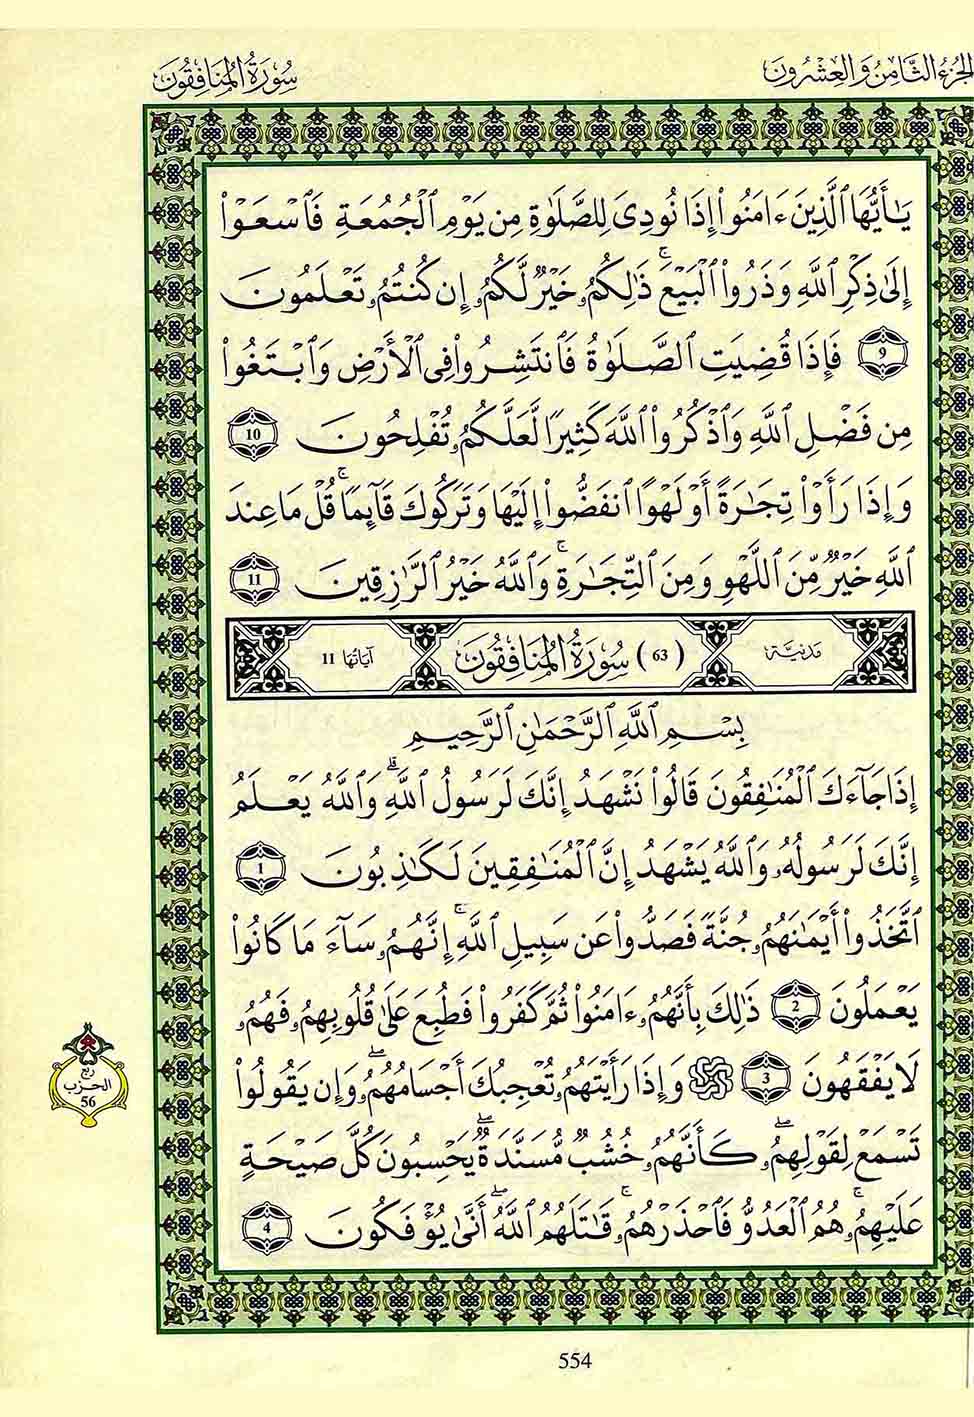 الجزء الثامن والعشرون
سورة المنافقون
يَـٰٓأَيُّهَا ٱلَّذِينَ ءَامَنُوٓا۟ إِذَا نُودِىَ لِلصَّلَوٰةِ مِن يَوْمِ ٱلْجُمُعَةِ فَٱسْعَوْا۟
إِلَىٰ ذِكْرِ ٱللَّهِ وَذَرُوا۟ ٱلْبَيْعَ ۚ ذَٰلِكُمُۥ خَيْرٌ لَّكُمُۥٓ إِن كُنتُمُۥ تَعْلَمُونَ
9 فَإِذَا قُضِيَتِ ٱلصَّلَوٰةُ فَٱنتَشِرُوا۟ فِى ٱلْأَرْضِ وَٱبْتَغُوا۟
مِن فَضْلِ ٱللَّهِ وَٱذْكُرُوا۟ ٱللَّهَ كَثِيرًا لَّعَلَّكُمُۥ تُفْلِحُونَ 10
وَإِذَا رَأَوْا۟ تِجَـٰرَةً أَوْ لَهْوًا ٱنفَضُّوٓا۟ إِلَيْهَا وَتَرَكُوكَ قَآئِمًا ۚ قُلْ مَا عِندَ
ٱللَّهِ خَيْرٌ مِّنَ ٱللَّهْوِ وَمِنَ ٱلتِّجَـٰرَةِ ۚ وَٱللَّهُ خَيْرُ ٱلرَّٰزِقِينَ 11
مدنية (63) سورة المنافقون آياتها 11
بِسْمِ ٱللَّهِ ٱلرَّحْمَـٰنِ ٱلرَّحِيمِ
إِذَا جَآءَكَ ٱلْمُنَـٰفِقُونَ قَالُوا۟ نَشْهَدُ إِنَّكَ لَرَسُولُ ٱللَّهِ ۗ وَٱللَّهُ يَعْلَمُ
إِنَّكَ لَرَسُولُهُۥ وَٱللَّهُ يَشْهَدُ إِنَّ ٱلْمُنَـٰفِقِينَ لَكَـٰذِبُونَ 1
ٱتَّخَذُوٓا۟ أَيْمَـٰنَهُمُۥ جُنَّةً فَصَدُّوا۟ عَن سَبِيلِ ٱللَّهِ ۚ إِنَّهُمُۥ سَآءَ مَا كَانُوا۟
يَعْمَلُونَ 2 ذَٰلِكَ بِأَنَّهُمُۥٓ ءَامَنُوا۟ ثُمَّ كَفَرُوا۟ فَطُبِعَ عَلَىٰ قُلُوبِهِمُۥ فَهُمُۥ
لَا يَفْقَهُونَ 3 وَإِذَا رَأَيْتَهُمُۥ تُعْجِبُكَ أَجْسَامُهُمُۥ ۖ وَإِن يَقُولُوا۟
تَسْمَعْ لِقَوْلِهِمُۥ ۖ كَأَنَّهُمُۥ خُشُبٌ مُّسَنَّدَةٌ ۖ يَحْسِبُونَ كُلَّ صَيْحَةٍ
عَلَيْهِمُۥ ۚ هُمُ ٱلْعَدُوُّ فَٱحْذَرْهُمُۥ ۚ قَـٰتَلَهُمُ ٱللَّهُ ۖ أَنَّىٰ يُؤْفَكُونَ 4
ربع
الحزب
56
554